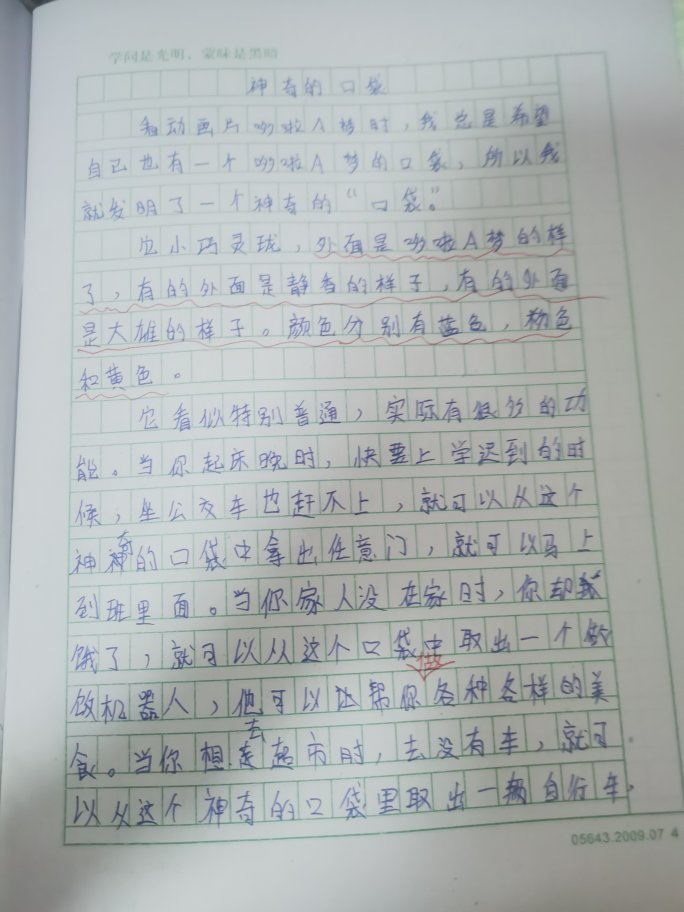 学问是光明，蒙昧是黑暗
神奇的口袋
看动画片哆啦A梦时，我总是希望
自己也有一个哆啦A梦的口袋，所以我
就发明了一个神奇的“口袋”。
它小巧灵珑，外面是哆啦A梦的样
子，有的外面是静香的样子，有的外面
是大雄的样子。颜色分别有蓝色，粉色
和黄色。
它看似特别普通，实际有很多的功
能。当你起床晚时，快要上学迟到的时
候，坐公交车也赶不上，就可以从这个
神奇的口袋中拿出任意门，就可以马上
到班里面。当你家人没在家时，你却
饿了，就可以从这个口袋中取出一个做
饭机器人，他可以帮你做各种各样的美
食。当你想去超市时，去没有车，就可
以从这个神奇的口袋里取出一辆自行车，
05643.2009.07 4